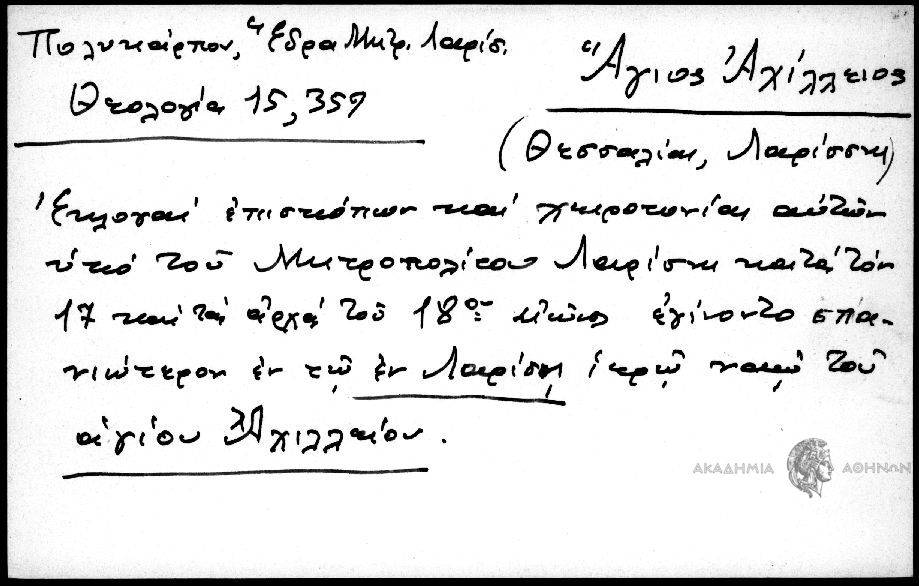 Πολυκάρπου, Ἕδρα Μητρ. Λαρίσ.
Θεολογία 15, 359
Ἅγιος Ἀχίλλειος
(Θεσσαλίας, Λαρίσσης)
Ἐκλογαί ἐπισκόπων καί χειροτονίαι αὐτῶν
ὑπό τοῦ Μητροπολίτου Λαρίσης κατά τόν
17 καί τάς ἀρχάς τοῦ 18ου αἰῶνος ἐγίνοντο σπα-
νιώτερον ἐν τῷ ἐν Λαρίσῃ ἱερῷ ναῷ τοῦ
ἁγίου Ἀχιλλείου.
ΑΚΑΔΗΜΙΑ ΑΘΗΝΩΝ